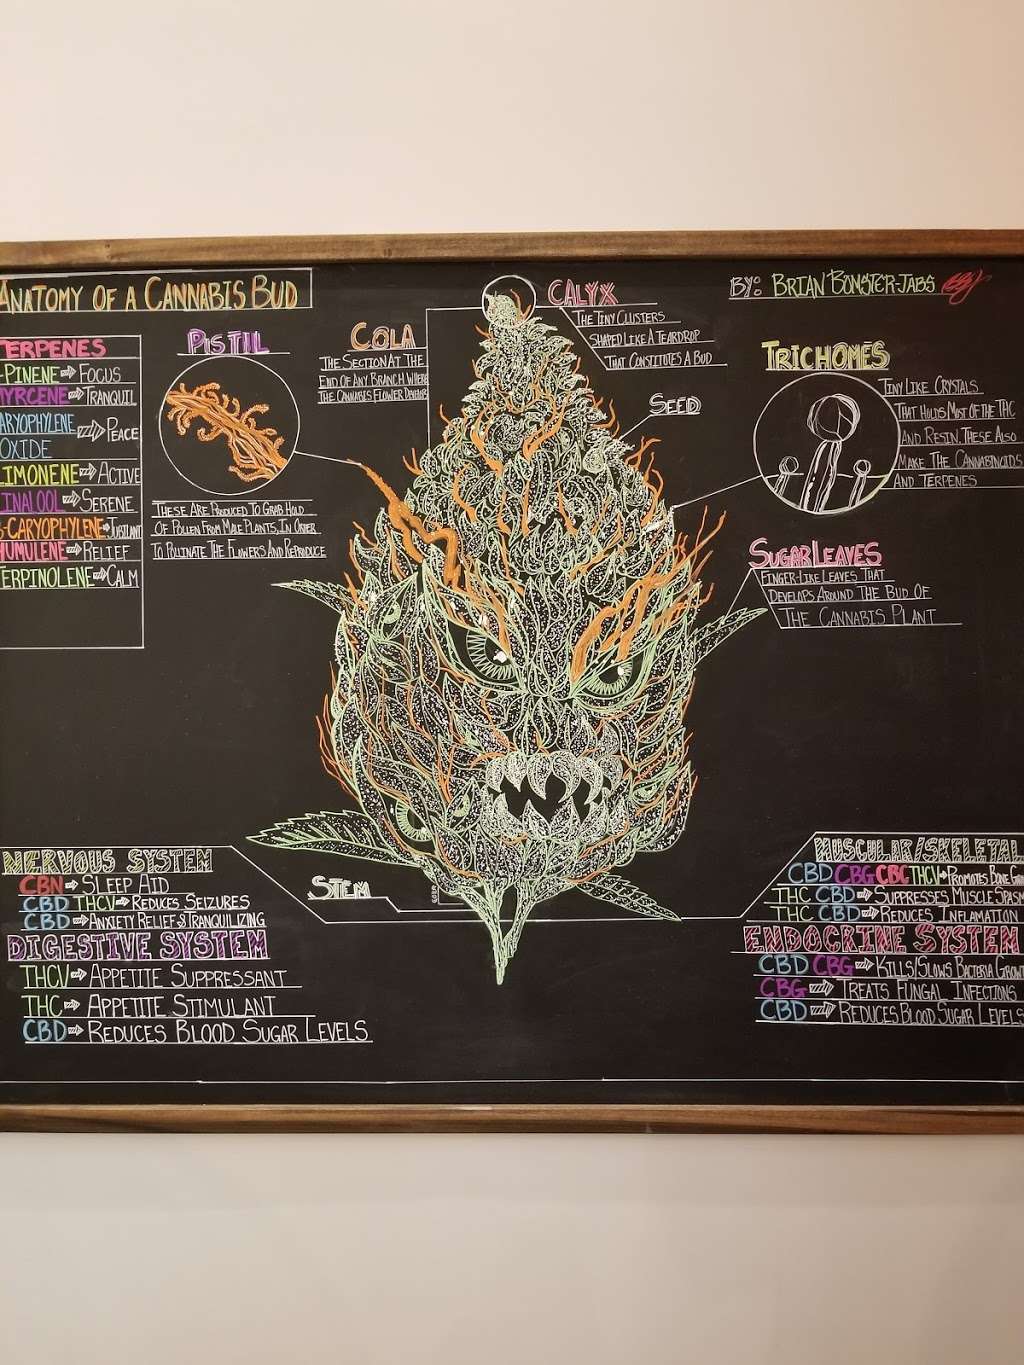 ANATOMY OF A CANNABIS BUD
BY: BRIAN BONSTER-JABS
TERPENES
-PINENE FOCUS
MYRCENE TRANQUIL
CARYOPHYLENE
OXIDE PEACE
LIMONENE ACTIVE
LINALOOL SERENE
-CARYOPHYLENE
HUMULENE RELIEF
TERPINOLENE CALM
PISTIL
THESE ARE PRODUCED TO GRAB HOLD
OF POLLEN FROM MALE PLANTS, IN ORDER
TO POLLINATE THE FLOWERS AND REPRODUCE
COLA
THE SECTION AT THE
END OF ANY BRANCH WHERE
THE CANNABIS FLOWER
CALYX
THE TINY CLUSTERS
SHAPED LIKE A TEARDROP
THAT CONSTITUTES A BUD
SEED
TRICHOMES
TINY LIKE CRYSTALS
THAT HOLDS MOST OF THE THC
AND RESIN. THESE ALSO
MAKE THE CANNABINOIDS
AND TERPENES
SUGAR LEAVES
FINGER-LIKE LEAVES THAT
DEVELOPS AROUND THE BUD OF
THE CANNABIS PLANT
STEM
NERVOUS SYSTEM
CBN SLEEP AID
CBD THCV REDUCES SEIZURES
CBD ANXIETY RELIEF & TRANQUILIZING
DIGESTIVE SYSTEM
THCV APPETITE SUPPRESSANT
THC APPETITE STIMULANT
CBD REDUCES BLOOD SUGAR LEVELS
MUSCULAR/SKELETAL
CBD CBG CBC THCV PROMOTES BONE
THC CBD SUPPRESSES MUSCLE SPASM
THC CBD REDUCES INFLAMATION
ENDOCRINE SYSTEM
CBD CBG KILLS/SLOWS BACTERIA GROWT
CBG TREATS FUNGAL INFECTIONS
CBD REDUCES BLOOD SUGAR LEVELS